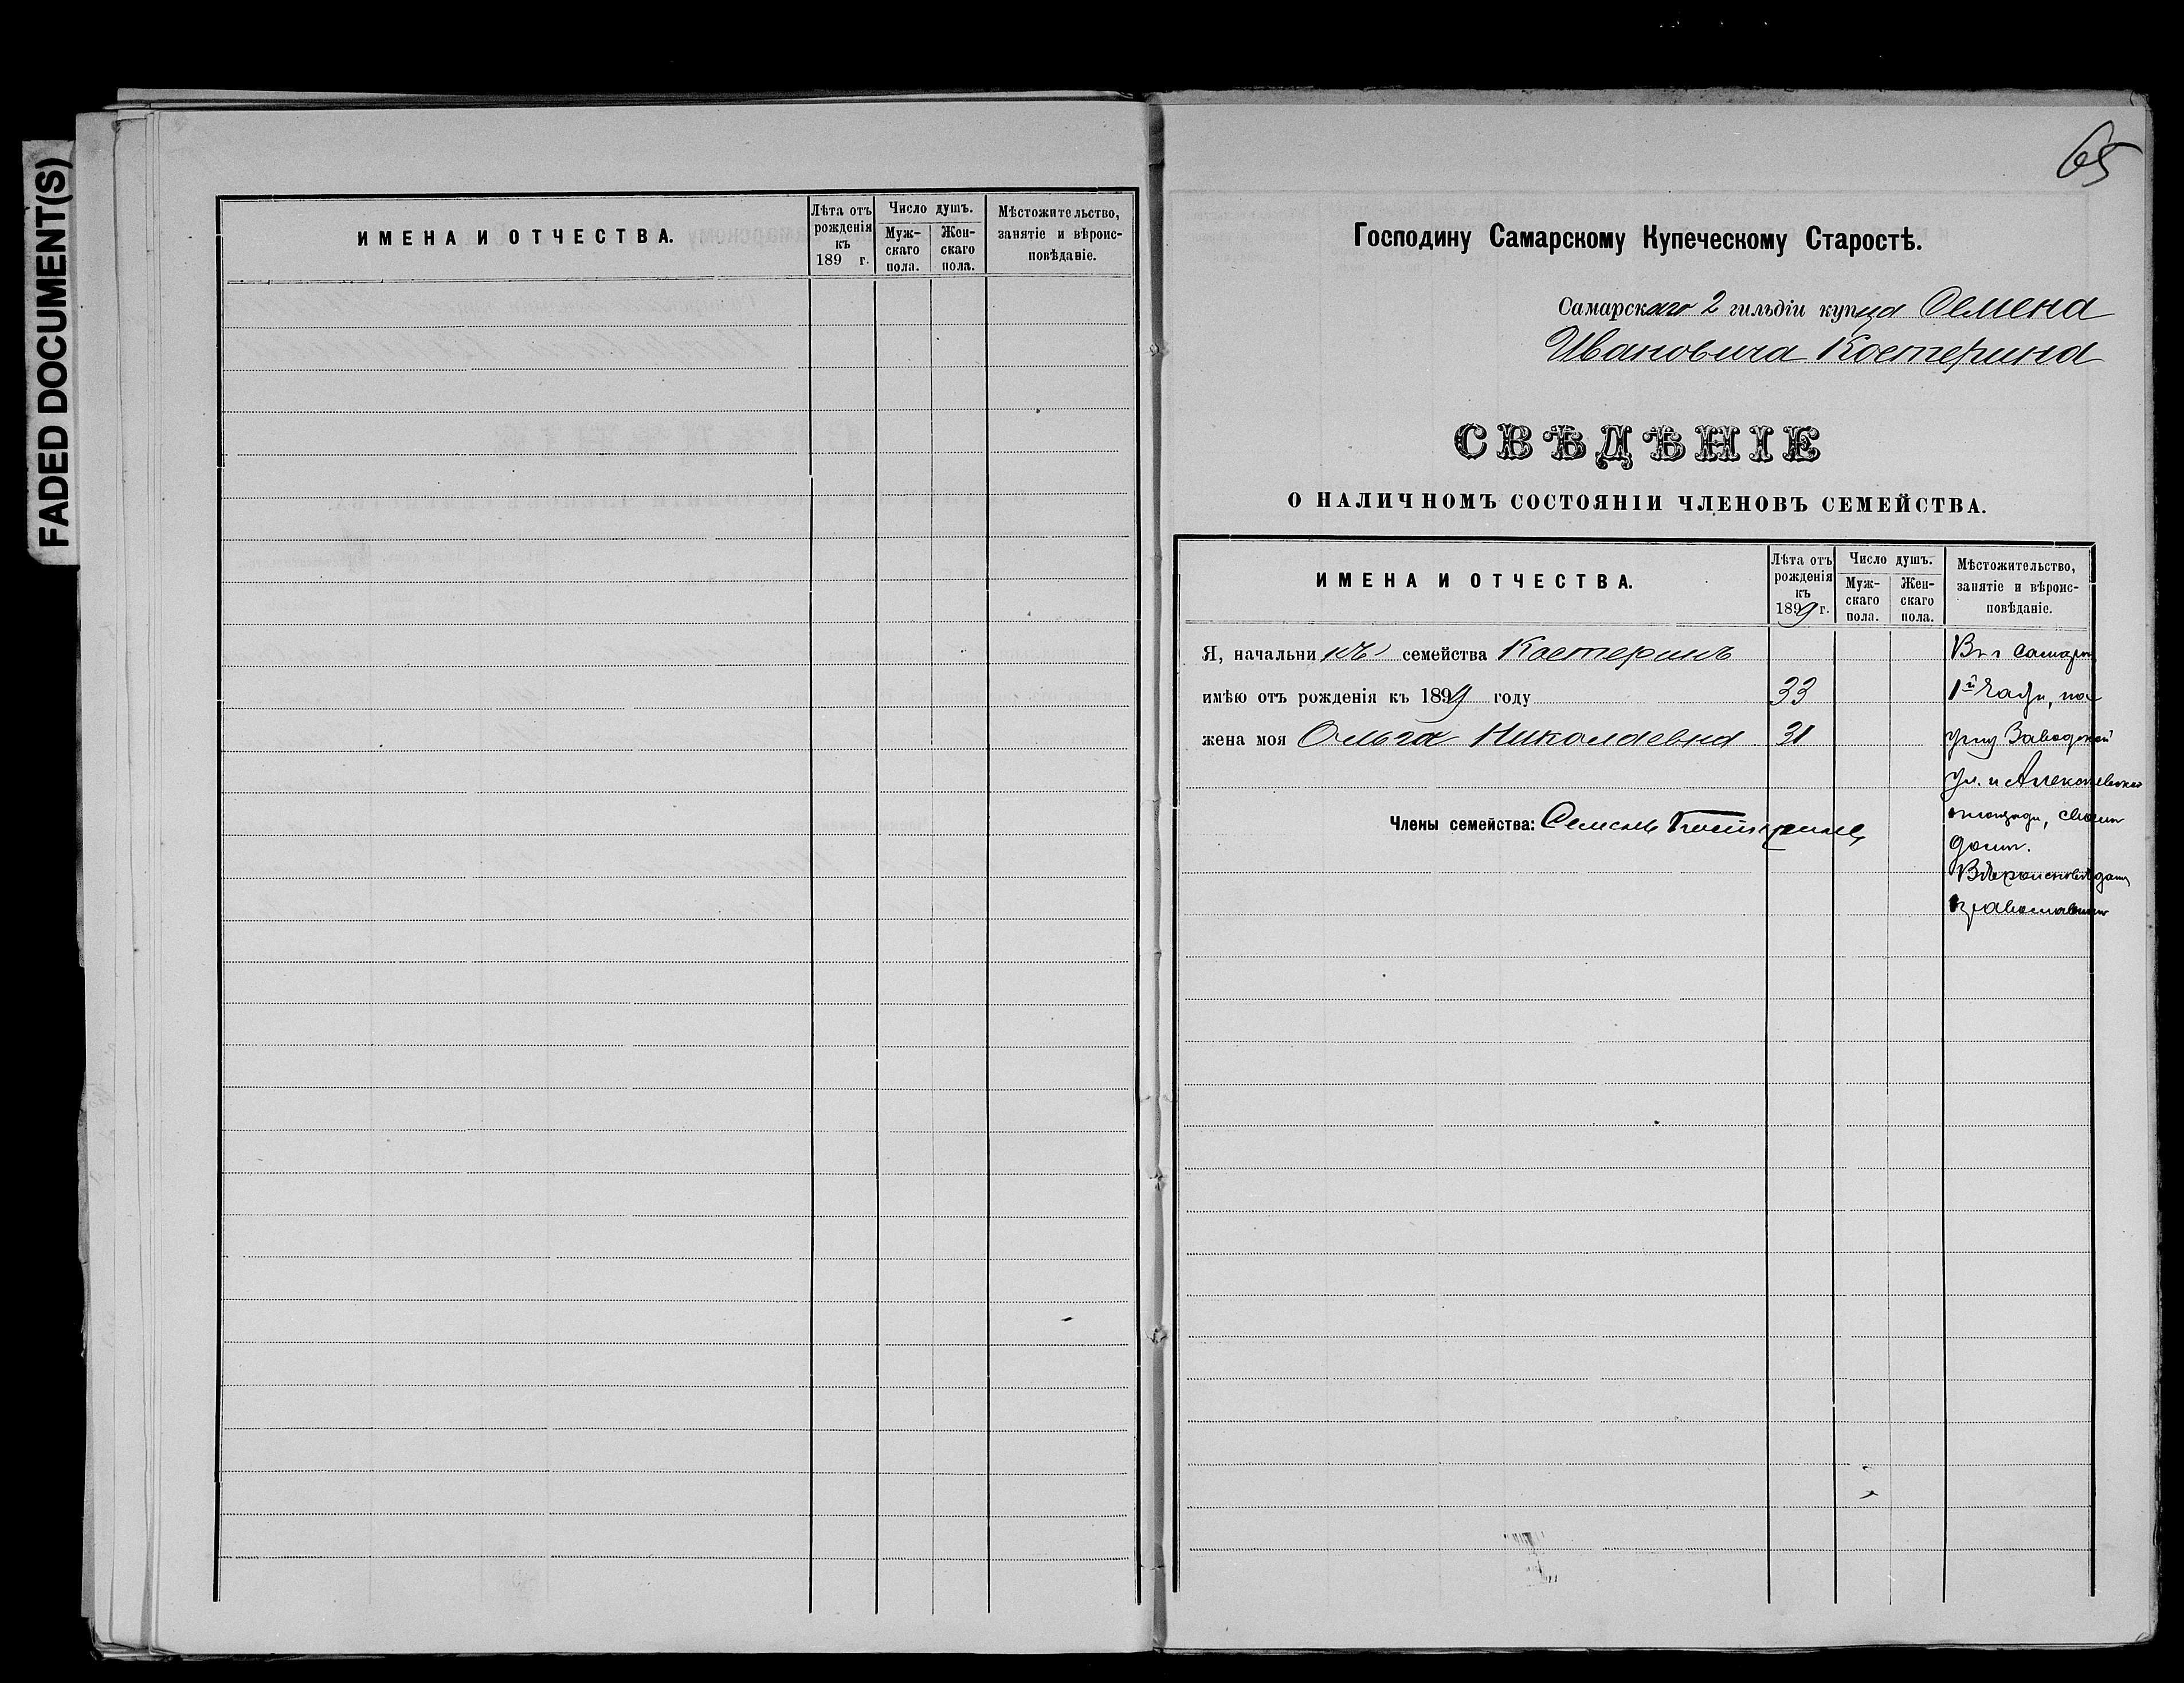 FADED DOCUMENT(S)
ИМЕНА И ОТЧЕСТВА.
Лѣта отъ рожденія къ 189 г.
Число душъ.
Муж-скаго пола.
Жен-скаго пола.
Мѣстожительство, занятіе и вѣроис-повѣданіе.
65
Господину Самарскому Купеческому Старостѣ.
Самарскаго 2 гильдіи купца Семена
Ивановича Костерина
СВѢДѢНІЕ
О НАЛИЧНОМЪ СОСТОЯНІИ ЧЛЕНОВЪ СЕМЕЙСТВА.
ИМЕНА И ОТЧЕСТВА.
Лѣта отъ рожденія къ 1899 г.
Число душъ.
Муж-скаго пола.
Жен-скаго пола.
Мѣстожительство, занятіе и вѣроис-повѣданіе.
Я, начальникъ семейства Костеринъ
имѣю отъ рожденія къ 1899 году 33
жена моя Ольга Николаевна 31
Члены семейства: Семенъ Костеринъ
Въ г Самарѣ
1й части, на
углу Заводской
ул. и Алексѣевской
площади, своемъ
домѣ.
Вѣроисповѣданія
православнаго